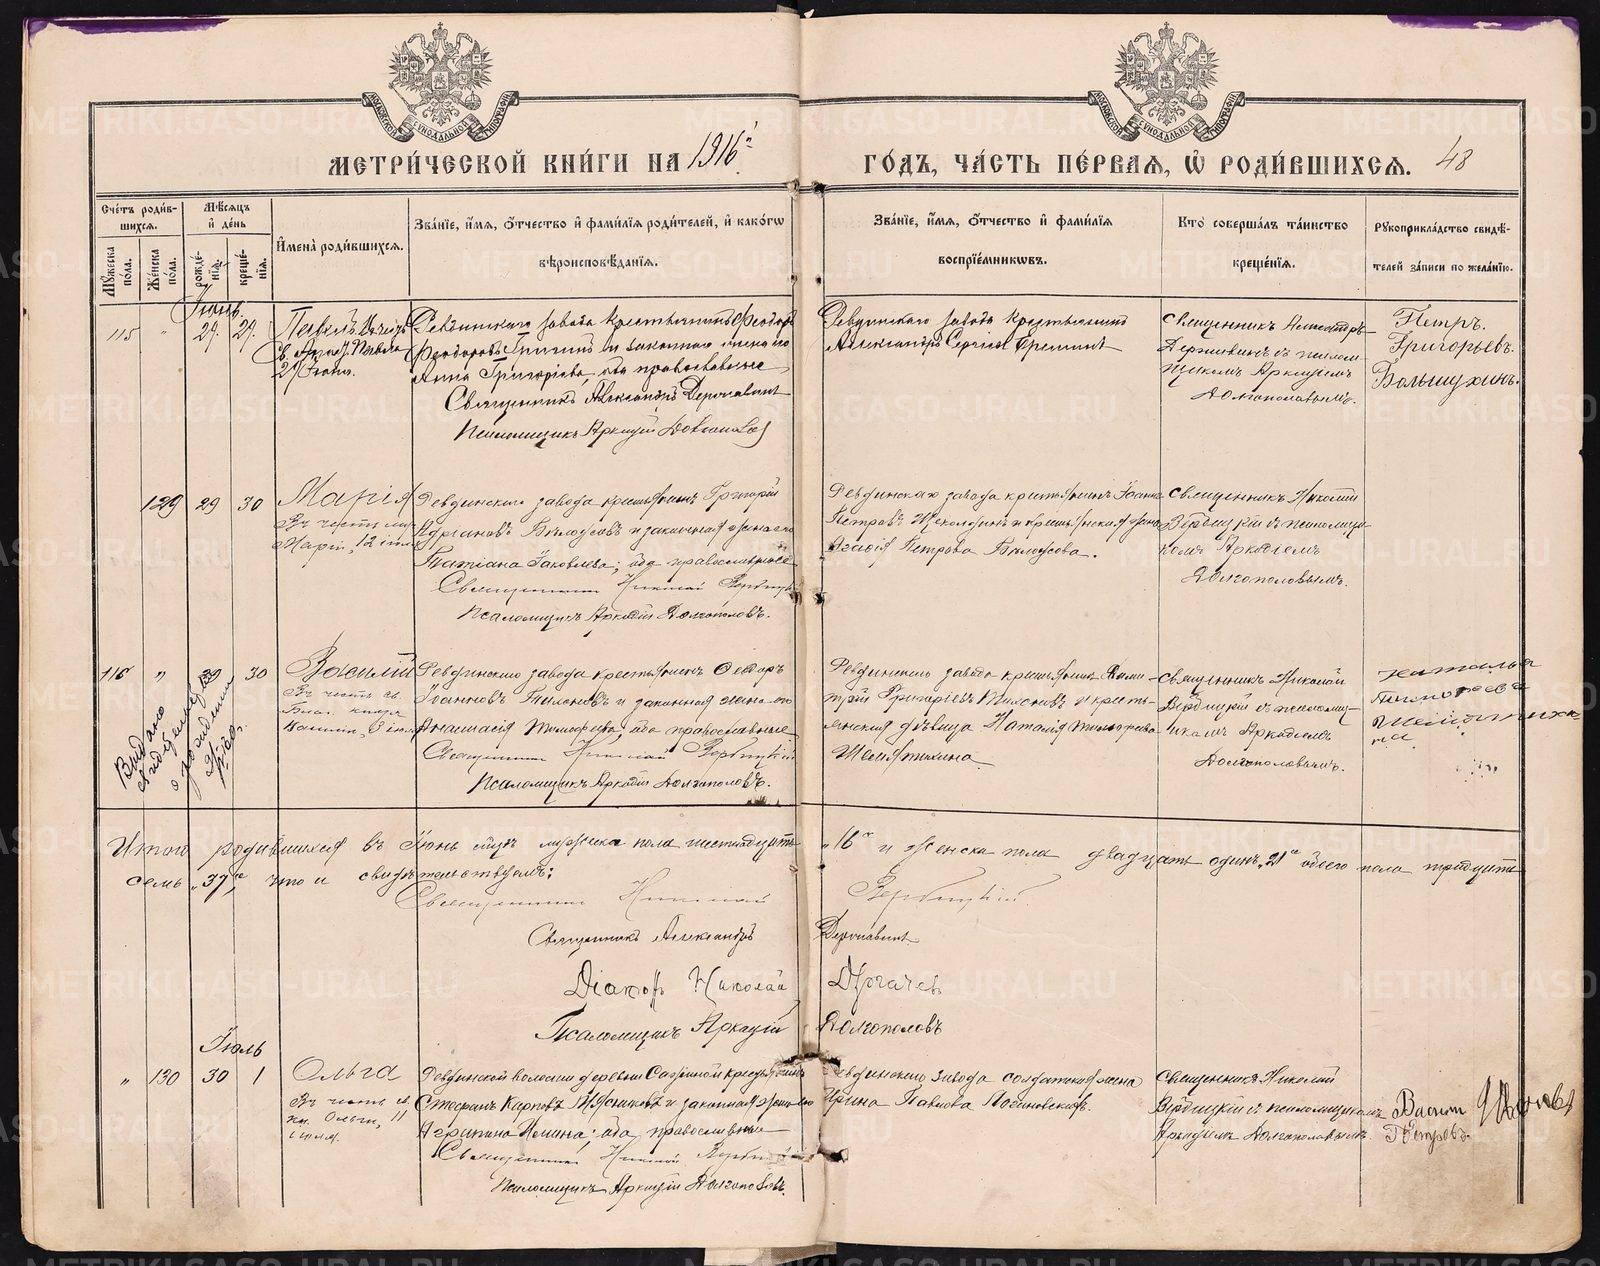 МЕТРИ́ЧЕСКОЙ КНИ́ГИ НА 1916й
ГО́ДЪ, ЧА́СТЬ ПЕ́РВАЯ, Ѡ РОДИ́ВШИХСЯ. 48
МОСКОВСКОЙ СѴНОДАЛЬНОЙ ТИПОГРАФІИ
МОСКОВСКОЙ СѴНОДАЛЬНОЙ ТИПОГРАФІИ
Сче́тъ роди́вшихся.
Му́жеска по́ла.
Же́нска по́ла.
Мѣ́сяцъ и҆ де́нь
рожде́нія.
креще́нія.
И҆мена̀ роди́вшихся.
Зва́ніе, и҆́мя, о҆́тчество и҆ фами́лія роди́телей, и҆ како́гѡ
вѣроисповѣ́данія.
Зва́ніе, и҆́мя, о҆́тчество и҆ фами́лія
воспріе́мниковъ.
Кто̀ соверша́лъ та́инство
креще́нія.
Рукоприкла́дство свидѣ́-
телей за́писи по жела́нію.
Іюнь.
115 " 29. 29.
Павелъ
св. Апос. Павла
29 Іюня.
Ревдинскаго завода крестьянинъ Феодоръ
Феодоровъ и законная жена его
Анна Григоріева, оба православные
Священникъ Александръ Державинъ
Псаломщикъ Аркадій Долгополовъ
Ревдинскаго завода крестьянинъ
Александръ Сергіевъ
Священникъ Александръ
Державинъ съ псалом-
щикомъ Аркадіемъ
Долгополовымъ.
Петръ.
Григорьевъ.
Больщухинъ.
129 29 30
Марія
Въ честь
Маріи, 12 іюля
Ревдинскаго завода крестьянинъ Григорій
Адріановъ Бѣлоусовъ и законная жена его
Татіана Іаковлева; оба православные
Священникъ Николай Вербицкій
Псаломщикъ Аркадій Долгополовъ.
Ревдинскаго завода крестьянинъ Іоаннъ
Петровъ и крестьянская жена
Агафія Петрова Бѣлоусова.
Священникъ Николай
Вербицкій съ псаломщи-
комъ Аркадіемъ
Долгополовымъ.
116 " 29 30
Выдано
свидѣтельство
о рожденіи
Василій
Въ честь св.
Благ. князя
Василія, 3 іюля
Ревдинскаго завода крестьянинъ Феодоръ
Іоанновъ и законная жена его
Анастасія Тимофеева, оба православные
Священникъ Николай Вербицкій
Псаломщикъ Аркадій Долгополовъ.
Ревдинскаго завода крестьянинъ Дими-
трій Григоріевъ и кресть-
янская дѣвица Наталія Тимофеева
Шемятихина
Священникъ Николай
Вербицкій съ псаломщи-
комъ Аркадіемъ
Долгополовымъ.
наталья
Тимофеева
Шемятихи
на
Итого родившихся въ Іюнѣ мужска пола шестнадцать
"16" и женска пола двадцать одинъ "21" обоего пола тридцать
семь "37", что и свидѣтельствуемъ:
Священникъ Николай Вербицкій
Священникъ Александръ Державинъ
Діаконъ Николай Дягачевъ
Псаломщикъ Аркадій Долгополовъ
Іюль
" 130 30 1
Ольга
Въ честь св.
кн. Ольги, 11
іюля.
Ревдинской волости деревни крестьянинъ
Стефанъ Карповъ и законная жена его
Агрипина; оба православные
Священникъ Николай Вербицкій
Псаломщикъ Аркадій Долгополовъ.
Ревдинскаго завода солдатская жена
Ирина Павлова
Священникъ Николай
Вербицкій съ псаломщикомъ
Аркадіемъ Долгополовымъ
Василій
Петровъ
METRIKI.GASO-URAL.RU